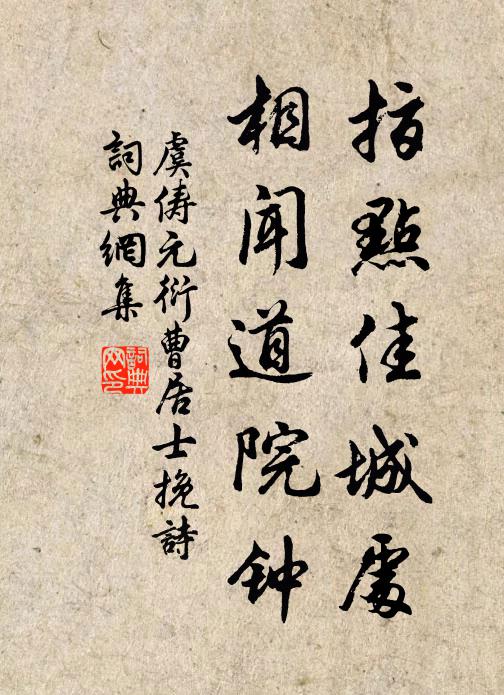 指點佳城處
相闻道院钟
虞儔元衍曹居士挽詩
詞典網集
詞典
网印